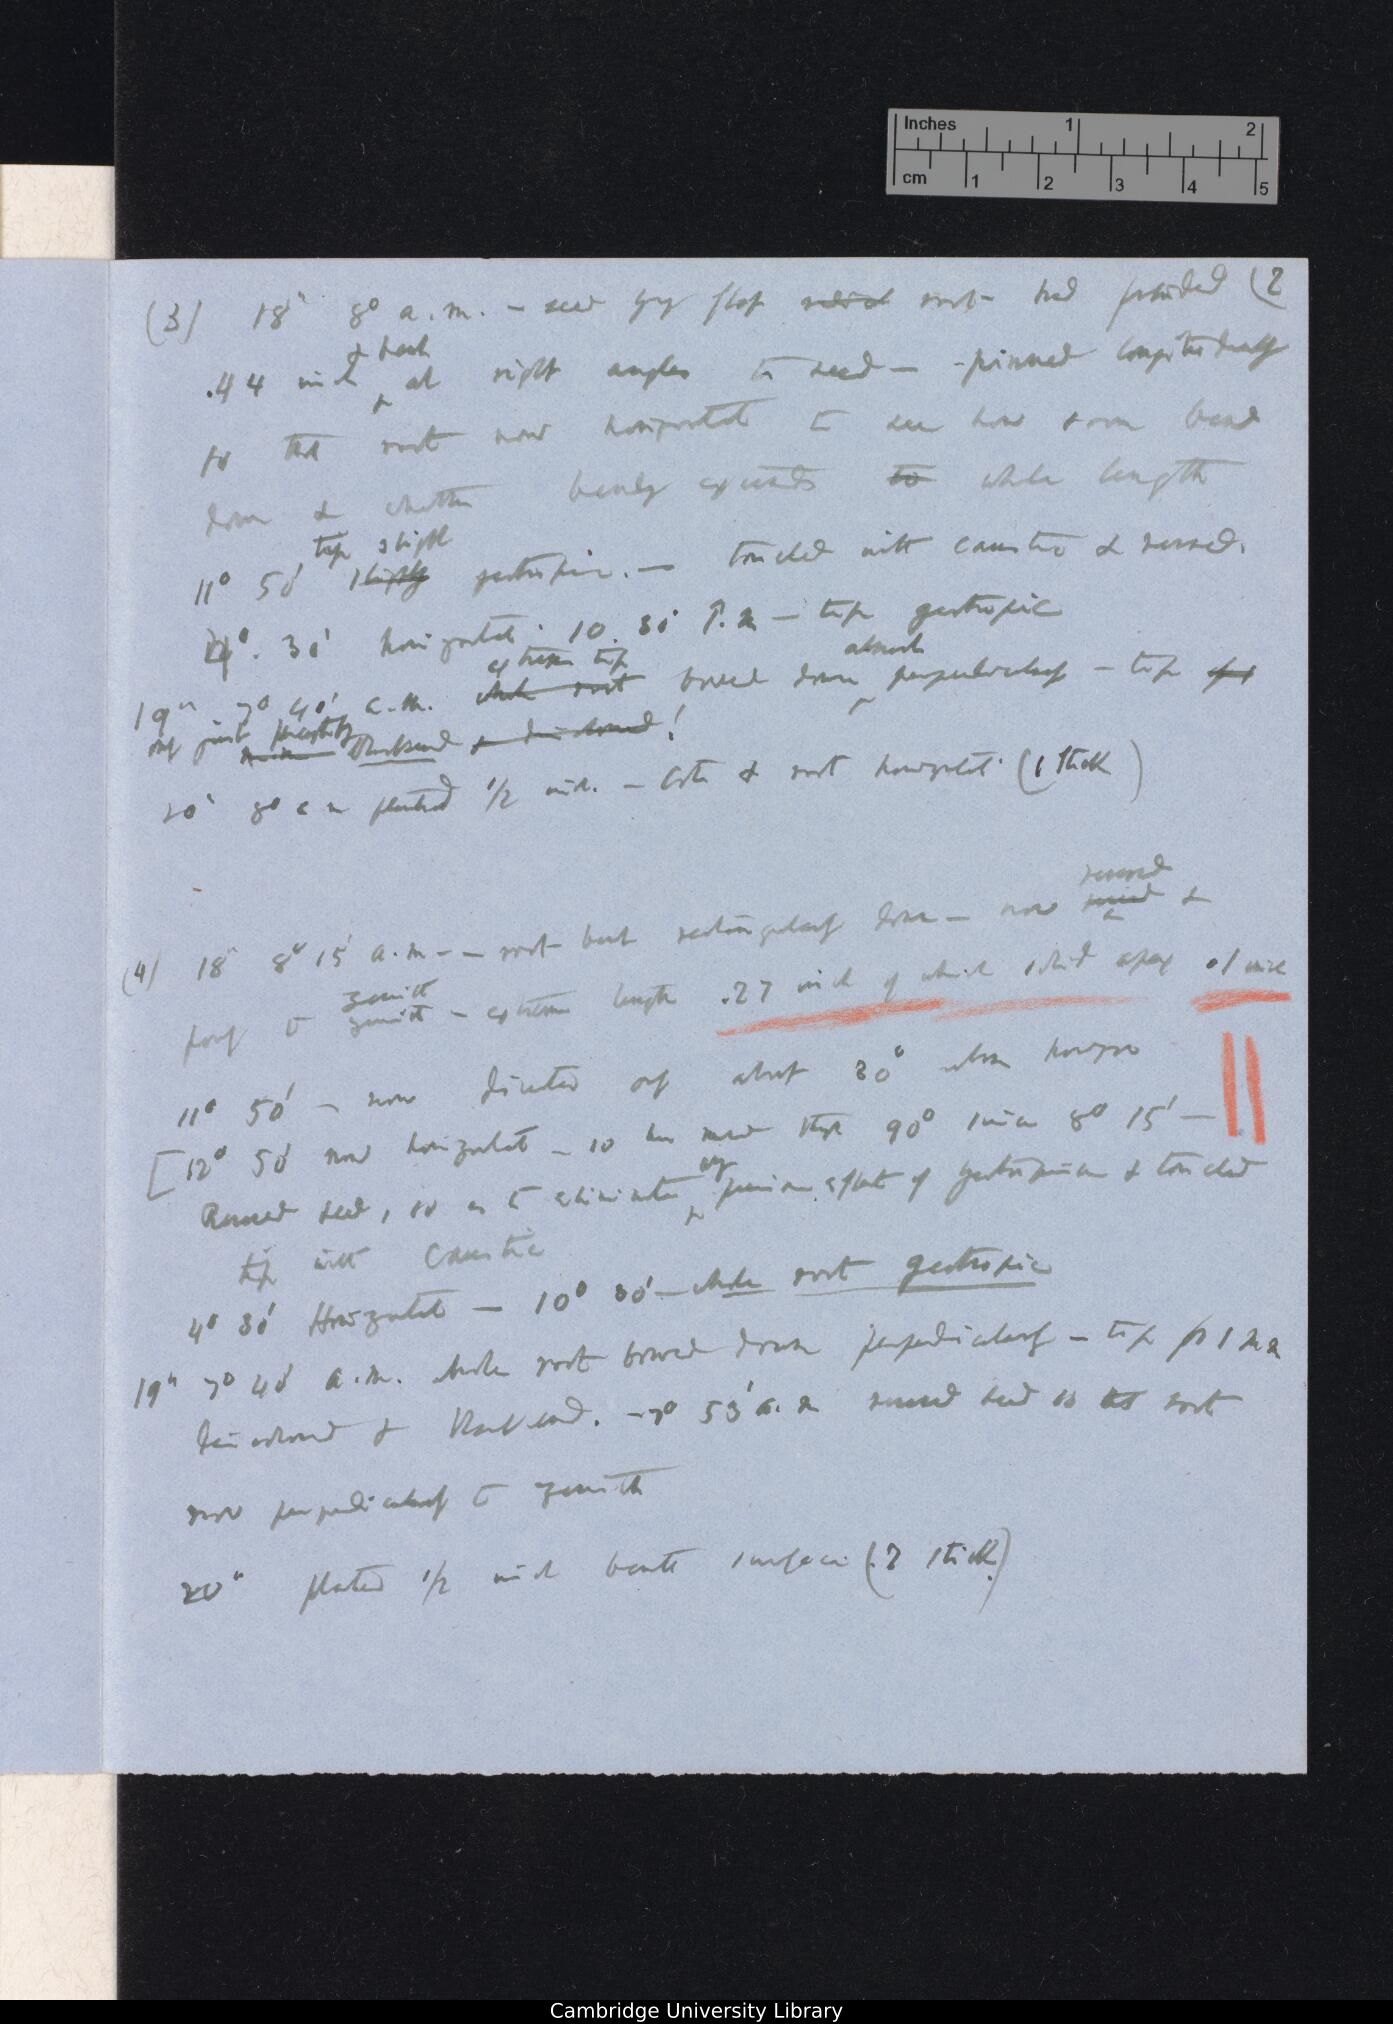 Inches 1 2
cm 1 2 3 4 5
(3) 18th 8° a.m. — seed root had protruded (2
& bent
.44 inch at right angles to seed — pinned longitudinally
so that root now horizontal to see how soon bend
down & whether bending extends to whole length
tip slight
11° 50' slightly geotropic. — touched with caustic & reversed.
4°. 30' horizontal. 10. 30' P.M — tip geotropic
extreme tip almost
19th 7° 40' a.m. whole root bowed down perpendicularly — tip
only just perceptibly blackened & discoloured!
20th 8° a m planted 1/2 inch. — & root horizontal (1 stick)
reversed
(4) 18th 8° 15' a.m — root bent rectangularly down — now &
zenith
points to zenith — extreme length .27 inch of which apex .1 inch
11° 50' — now directed only about 30° above horizon
[12° 50' now horizontal — so has moved thro 90° since 8° 15' —
any
Reversed seed, so as to eliminate previous effect of geotropism & touched
tip with Caustic
4° 30' Horizontal — 10° 30' — whole root geotropic
19th 7° 40' a.m. whole root bowed down perpendicularly — tip for 1 mm
discoloured & blackened. — 7° 53' a.m reversed seed so that root
now perpendicularly to zenith
20th planted 1/2 inch beneath surface (.2 stick)
Cambridge University Library